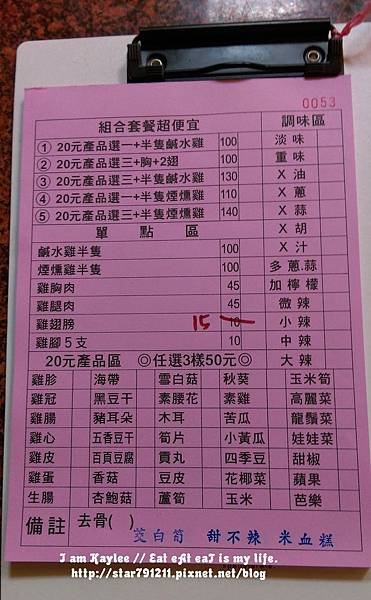 0053
組合套餐超便宜 調味區
① 20元產品選一+半隻鹹水雞 100 淡味
② 20元產品選三+胸+2翅 100 重味
③ 20元產品選三+半隻鹹水雞 130 X油
④ 20元產品選一+半隻煙燻雞 110 X蔥
⑤ 20元產品選三+半隻煙燻雞 140 X蒜
單點區 X胡
鹹水雞半隻 100 X汁
煙燻雞半隻 100 多蔥.蒜
雞胸肉 45 加檸檬
雞腿肉 45 微辣
雞翅膀 15 10 小辣
雞腳5支 10 中辣
20元產品區 ◎任選3樣50元◎ 大辣
雞胗 海帶 雪白菇 秋葵 玉米筍
雞冠 黑豆干 素腰花 素雞 高麗菜
雞腸 豬耳朵 木耳 苦瓜 龍鬚菜
雞心 五香豆干 筍片 小黃瓜 娃娃菜
雞皮 百頁豆腐 貢丸 四季豆 甜椒
雞蛋 香菇 豆皮 花椰菜 蘋果
生腸 杏鮑菇 蘆筍 玉米 芭樂
備註 去骨( )
茭白筍 甜不辣 米血糕
I am Kaylee // Eat eAt eaT is my life.
http://star791211.pixnet.net/blog